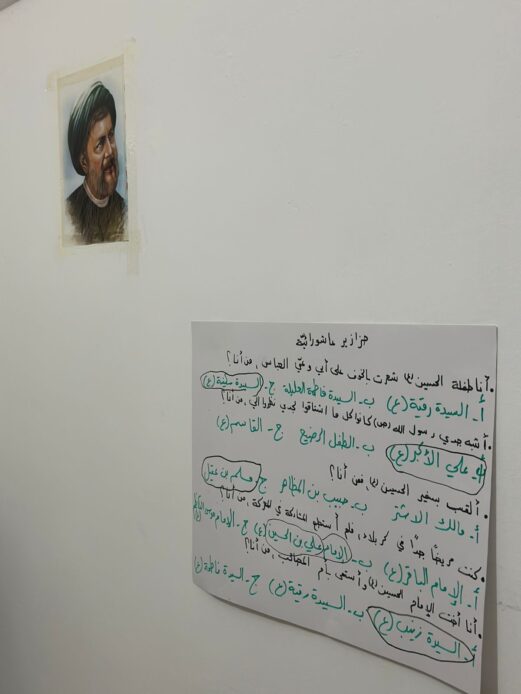 حزازير عاشورائية
• أنا طفلة الحسين (ع) شعرت بالخوف على أبي وعمّي العباس، من أنا؟
أ- السيدة رقية (ع) ب- السيدة فاطمة العليلة ج- السيدة سكينة (ع)
• أشبه جدي رسول الله (ص) كانوا كل ما اشتاقوا لجدي نظروا إلي، من أنا؟
أ- علي الأكبر (ع) ب- الطفل الرضيع ج- القاسم (ع)
• ألقب بسفير الحسين (ع)، فمن أنا؟
أ- مالك الاشتر ب- حبيب بن المظاهر ج- مسلم بن عقيل
• كنت مريضا جدًا في كربلاء، فلم أستطع المشاركة في المعركة، من أنا؟
أ- الإمام الباقر (ع) ب- الإمام علي بن الحسين (ع) ج- الإمام موسى الكاظم (ع)
• أنا أخت الإمام الحسين (ع) وأسمى بأم المصائب، من أنا؟
أ- السيدة زينب (ع) ب- السيدة رقية (ع) ج- السيدة فاطمة (ع)